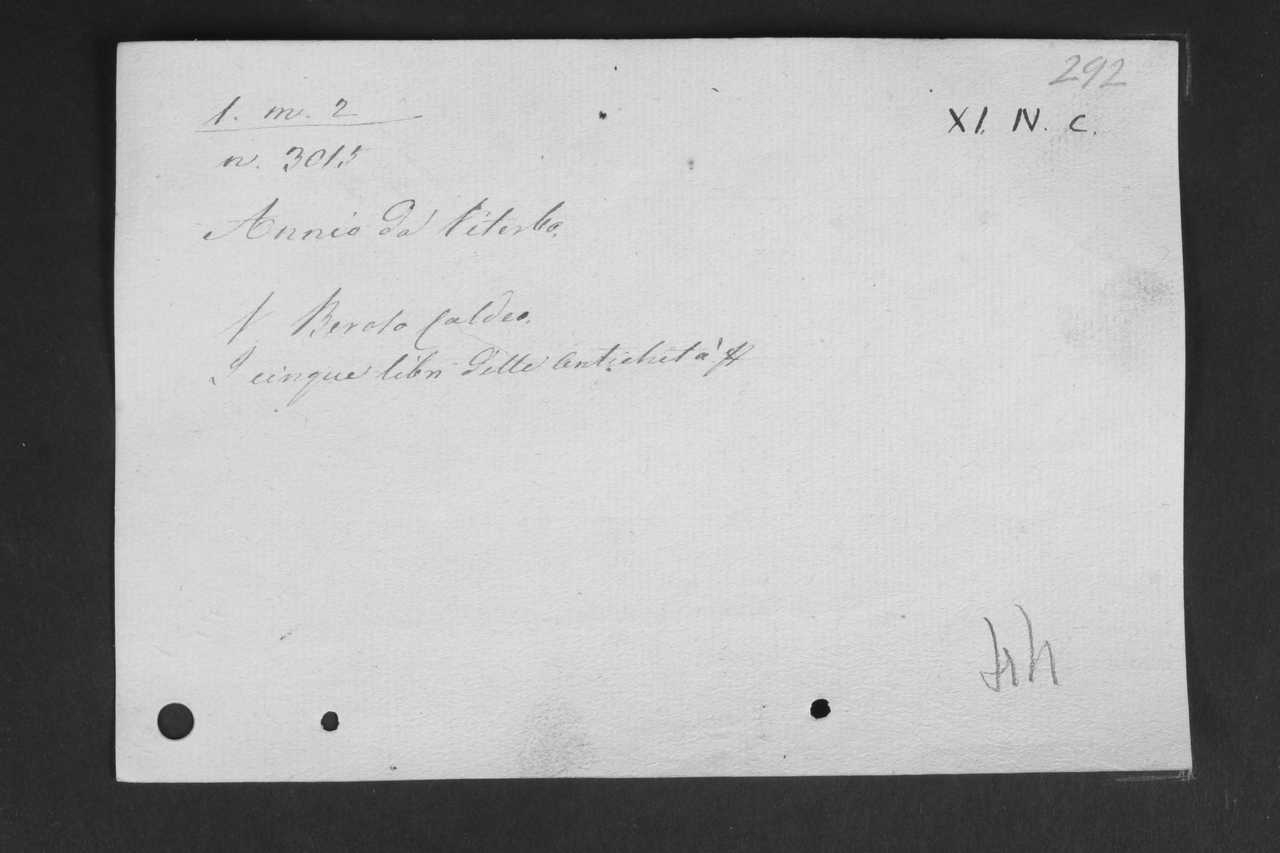 292
1. m. 2
XI. IV. c.
n. 3015
Annio da Viterbo.
V Beroso Caldeo.
I cinque libri delle Antichità